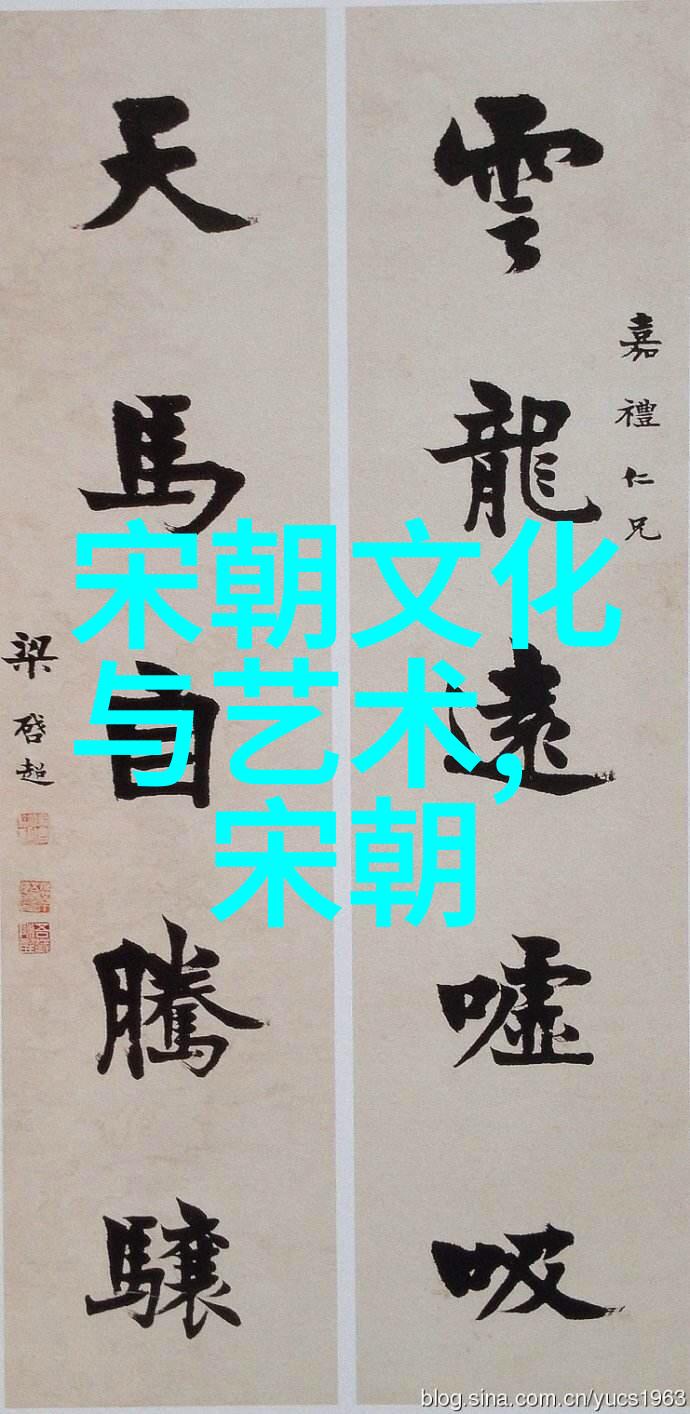 嘉禮仁兄
雲龍遠噓吸
天馬自騰驤
梁啓超
宋朝文化
与艺术,
宋朝
blog.sina.com.cn/yucs1963